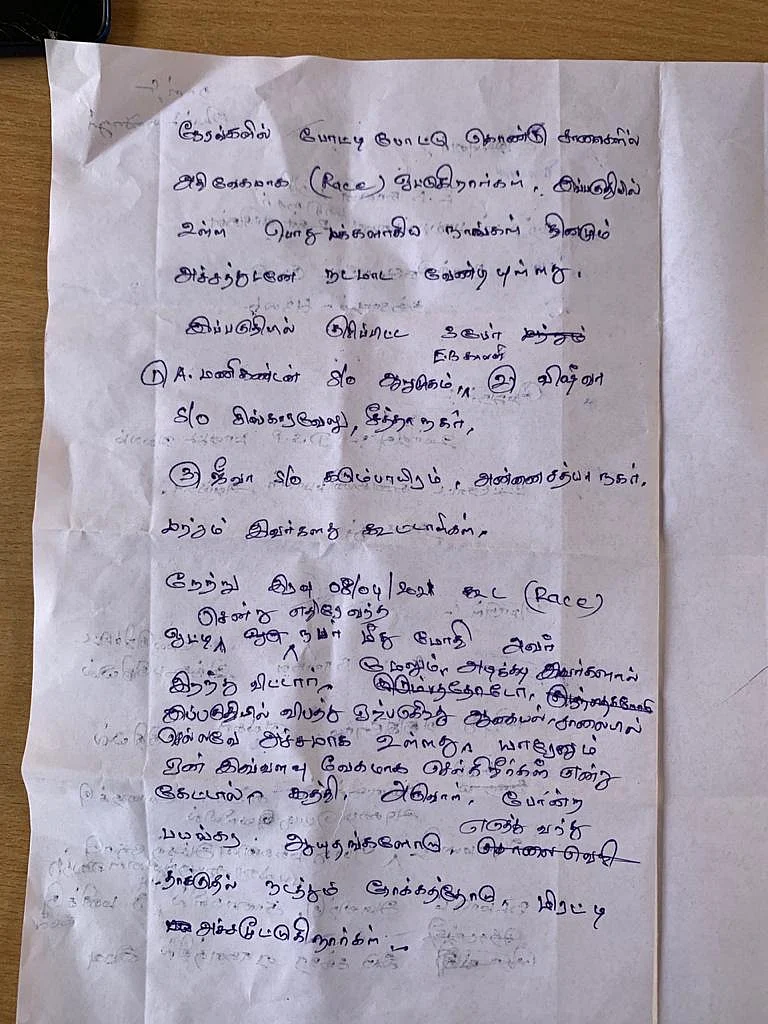 நேரங்களில் போட்டி போட்டு கொண்டு சாலைகளில்
அதிவேகமாக (Race) ஓட்டுகிறார்கள். இப்பகுதியில்
உள்ள பொது மக்களாகிய நாங்கள் தினமும்
அச்சத்துடனே நடமாட வேண்டியுள்ளது.
இப்பகுதியில் குறிப்பிட்ட 3 பேர் மற்றும்
EB காலனி
① A. மணிகண்டன் S/o ஆறுமுகம், ② விஷ்வா
S/o சிங்காரவேலு, சீத்தா நகர்,
③ ஜீவா S/o கடும்பாயிரம், அன்னை சத்யா நகர்.
மற்றும் இவர்களது கூட்டாளிகள்.
நேற்று இரவு 08/04/2021 கூட (Race)
சென்று எதிரே வந்த
ஓட்டி ஒரு நபர் மீது மோதி அவர்
மேலும், அடிக்கடி இவர்களால்
இறந்து விட்டார்.
இப்பகுதியில் விபத்து ஏற்படுகிறது ஆகையால் சாலையில்
செல்லவே அச்சமாக உள்ளது. யாரேனும்
ஏன் இவ்வளவு வேகமாக செல்கிறீர்கள் என்று
கேட்டால், கத்தி, அருவா, போன்ற
எடுத்து வந்து
பயங்கர ஆயுதங்களோடு கொலைவெறி
தாக்குதல் நடத்தும் நோக்கத்தோடு மிரட்டி
அச்சமூட்டுகிறார்கள்.